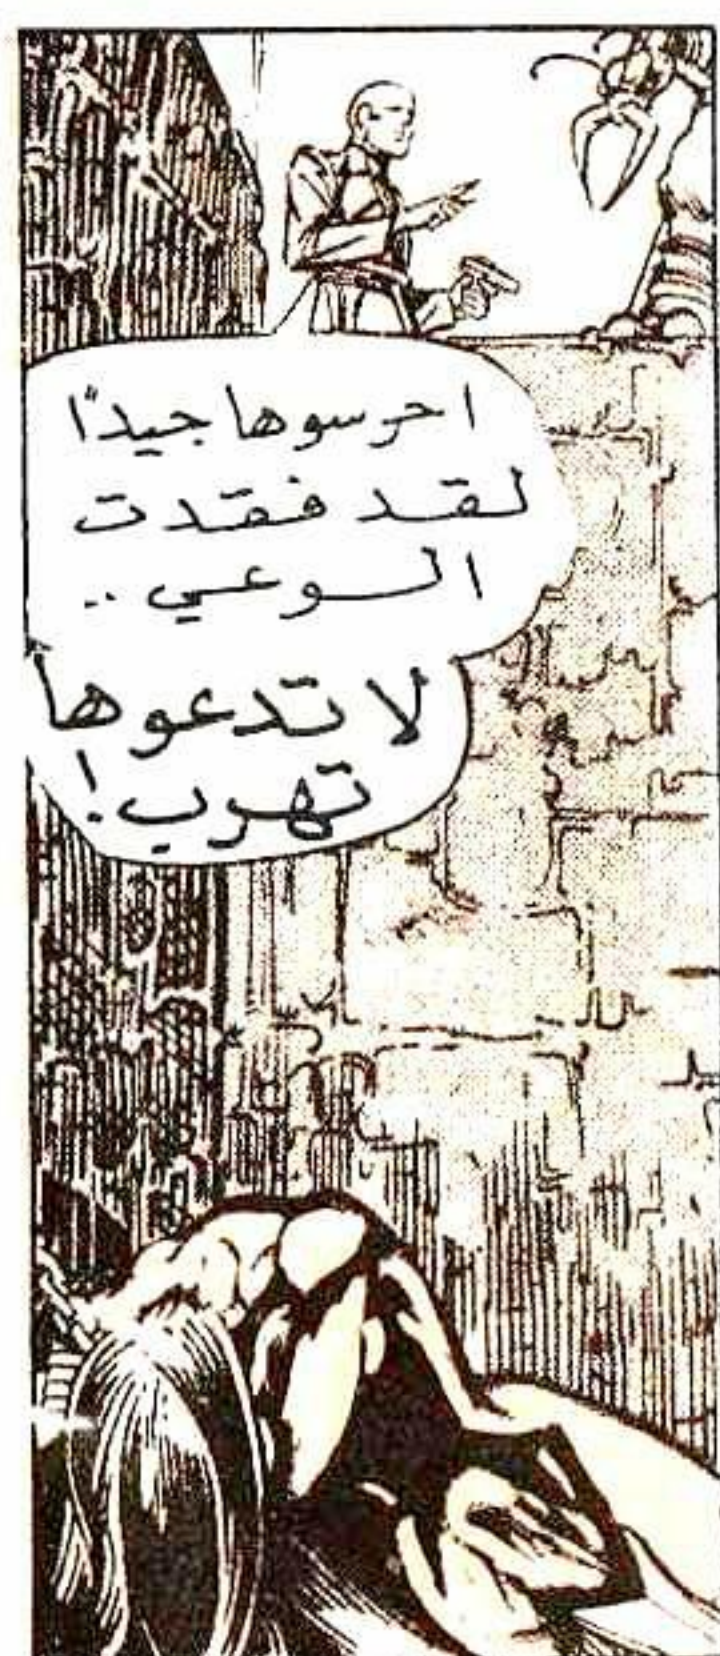 احرسوها جيداً
لقد فقدت
الوعي ..
لا تدعوها
تهرب!